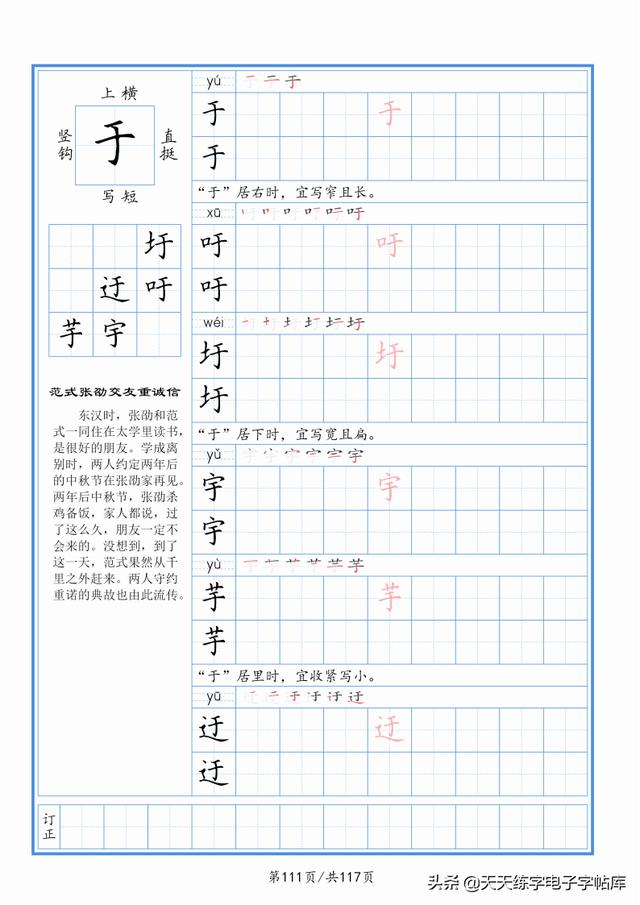 上横
竖钩
于
直挺
写短
圩
迂 吁
芋 宇
范式张劭交友重诚信
东汉时，张劭和范
式一同住在太学里读书，
是很好的朋友。学成离
别时，两人约定两年后
的中秋节在张劭家再见。
两年后中秋节，张劭杀
鸡备饭，家人都说，过
了这么久，朋友一定不
会来的。没想到，到了
这一天，范式果然从千
里之外赶来。两人守约
重诺的典故也由此流传。
yú
于 于
于
“于”居右时，宜写窄且长。
xū
吁 吁
吁
wéi
圩 圩
圩
“于”居下时，宜写宽且扁。
yǔ
宇 宇
宇
yù
芋 芋
芋
“于”居里时，宜收紧写小。
yū
迂 迂
迂
订正
第111页/共117页
头条 @天天练字电子字帖库